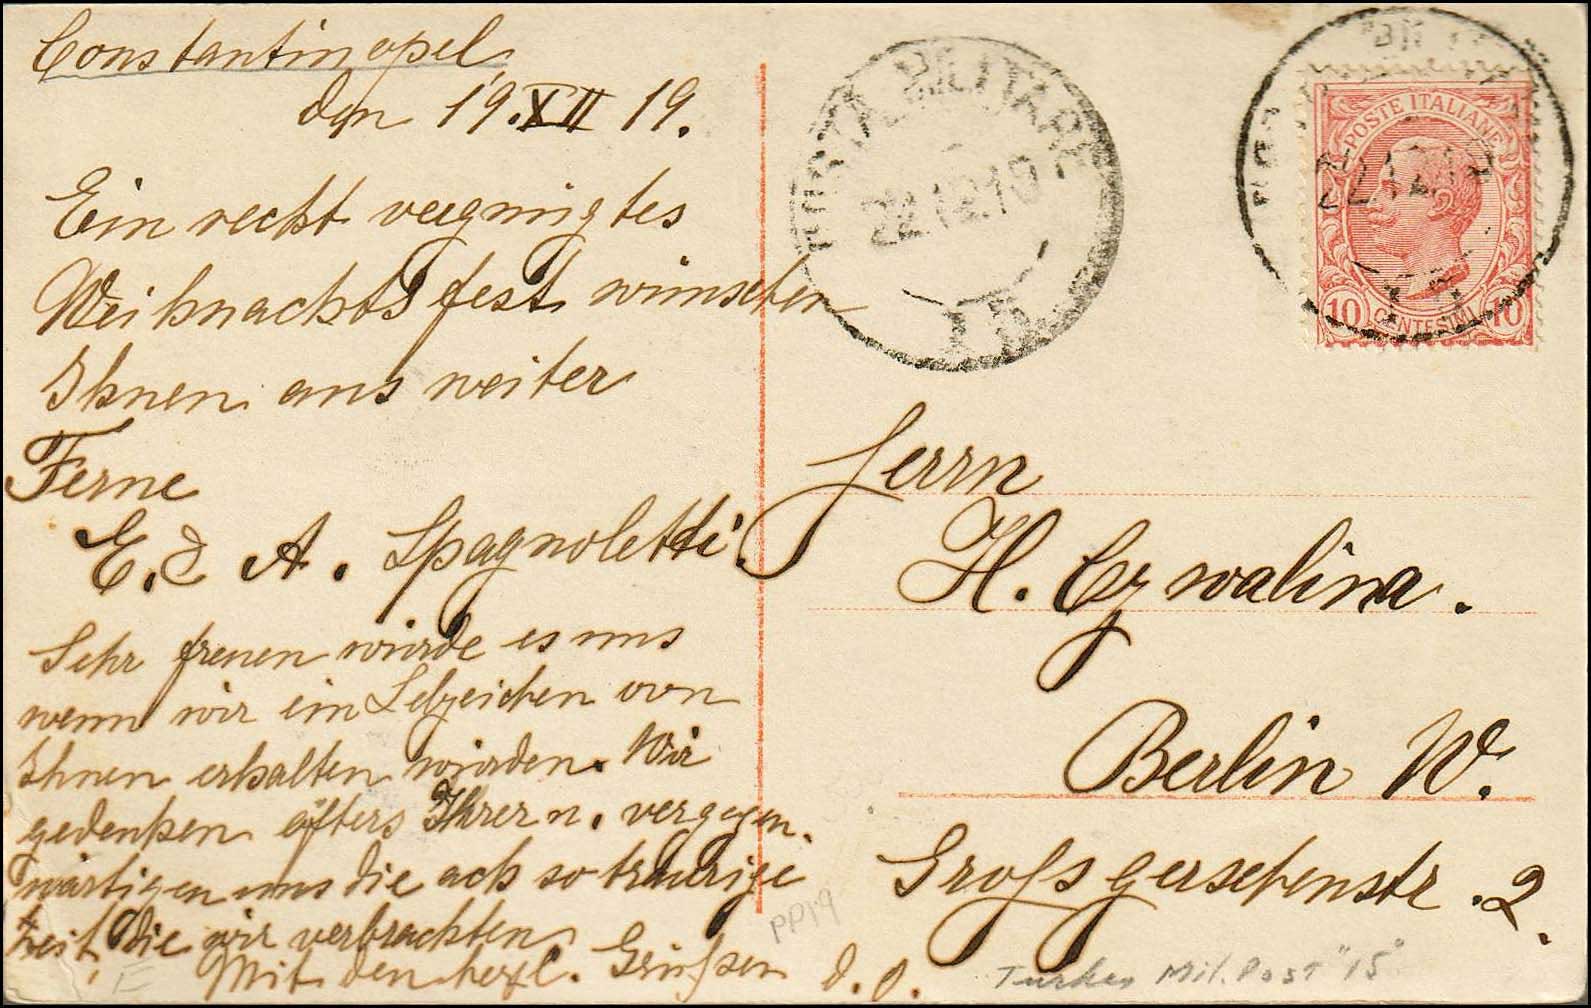 Constantinopel
den 19.XII 19.
Ein recht vergnügtes
Weihnachtsfest wünschen
Ihnen aus weiter
Ferne
E. & A. Spagnoletti.
Sehr freuen würde es uns
wenn wir ein Lebzeichen von
Ihnen erhalten würden. Wir
gedenken öfters Ihrer u. vergegen-
wärtigen uns die ach so traurige
Zeit, die wir verbrachten.
Mit den herzl. Grüßen d. O.
POSTA MILITARE
22.12.19
15
POSTE ITALIANE
10 CENTESIMI 10
22.12.19
Herrn
H. Czwalina.
Berlin W.
Großgörschenstr. 2.
PP19
Mil. Post "15"
E